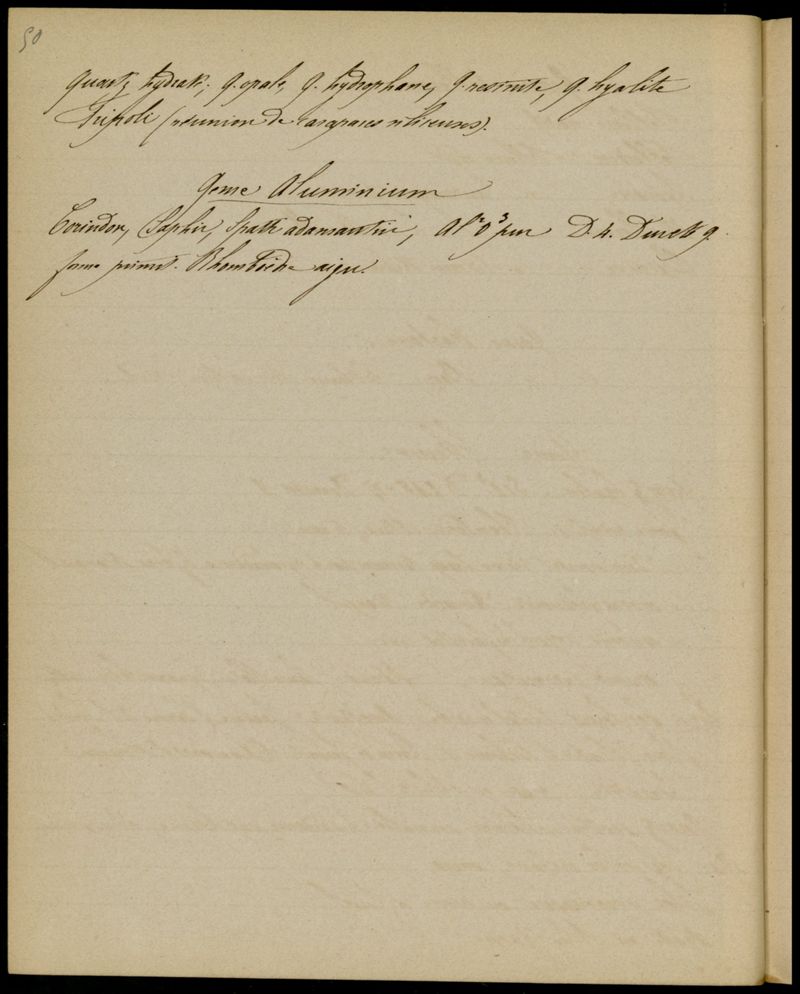 50
quartz hydrat. q. opale, q. hydrophane, q. résinite, q. hyalite
Tripoli (réunion de carapaces siliceuses).
Geme Aluminium
Corindon, Saphir, Spath adamantin, Al²O³ pur D. 4. Dureté 9.
forme primit. Rhomboèdre aigu.